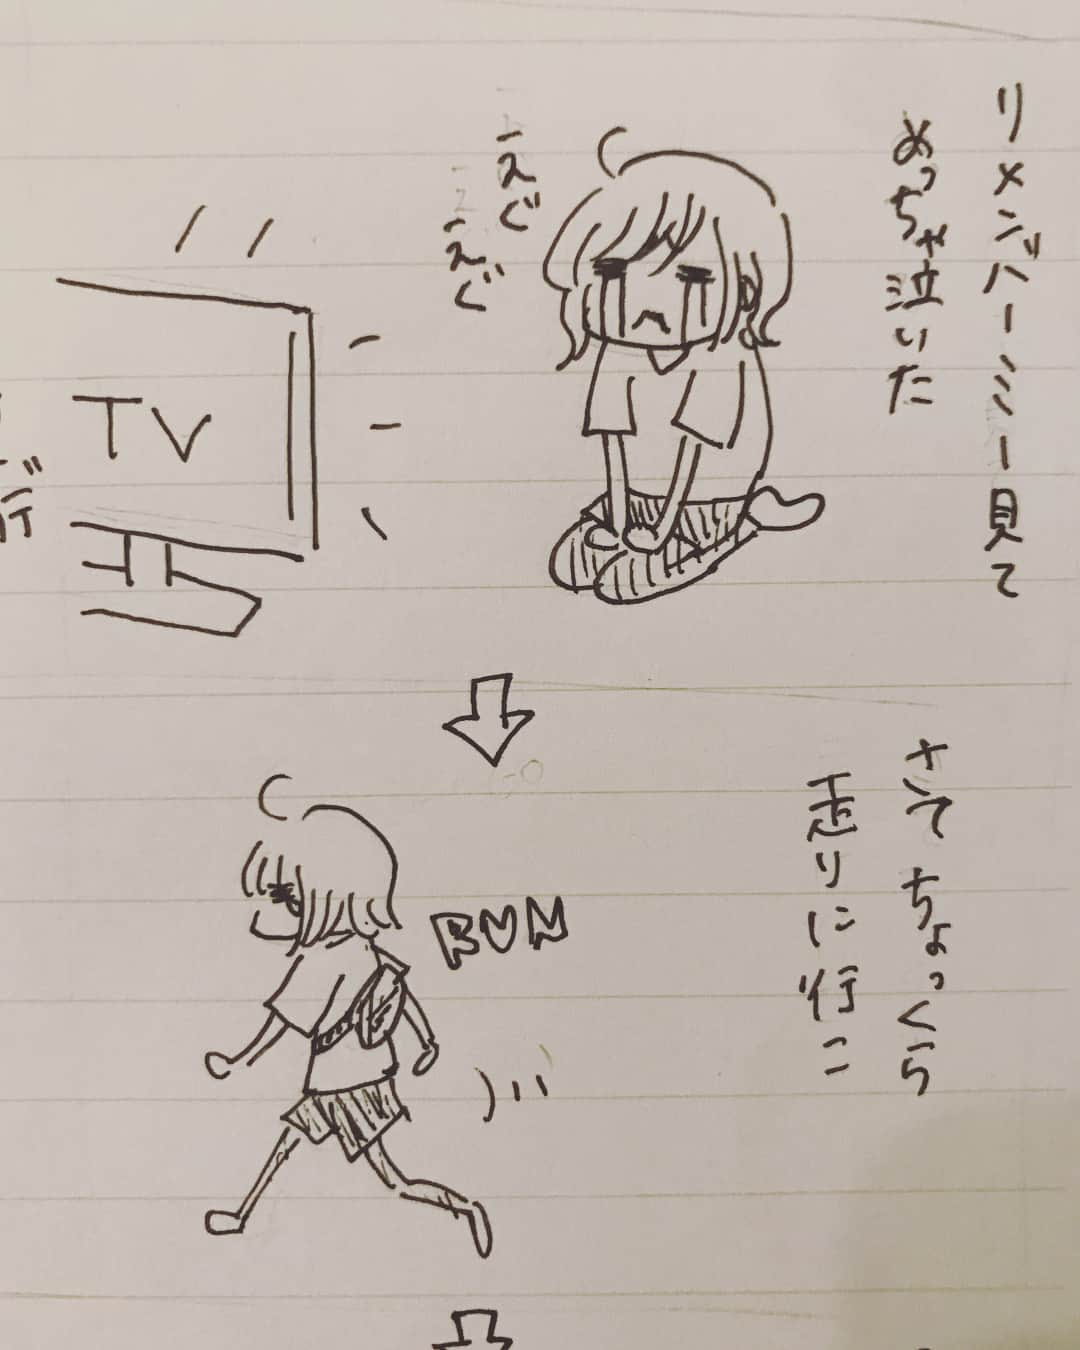 リメンバーミー見て
めっちゃ泣いた
えぐ
えぐ
TV
さて ちょっくら
走りに行こ
RUN